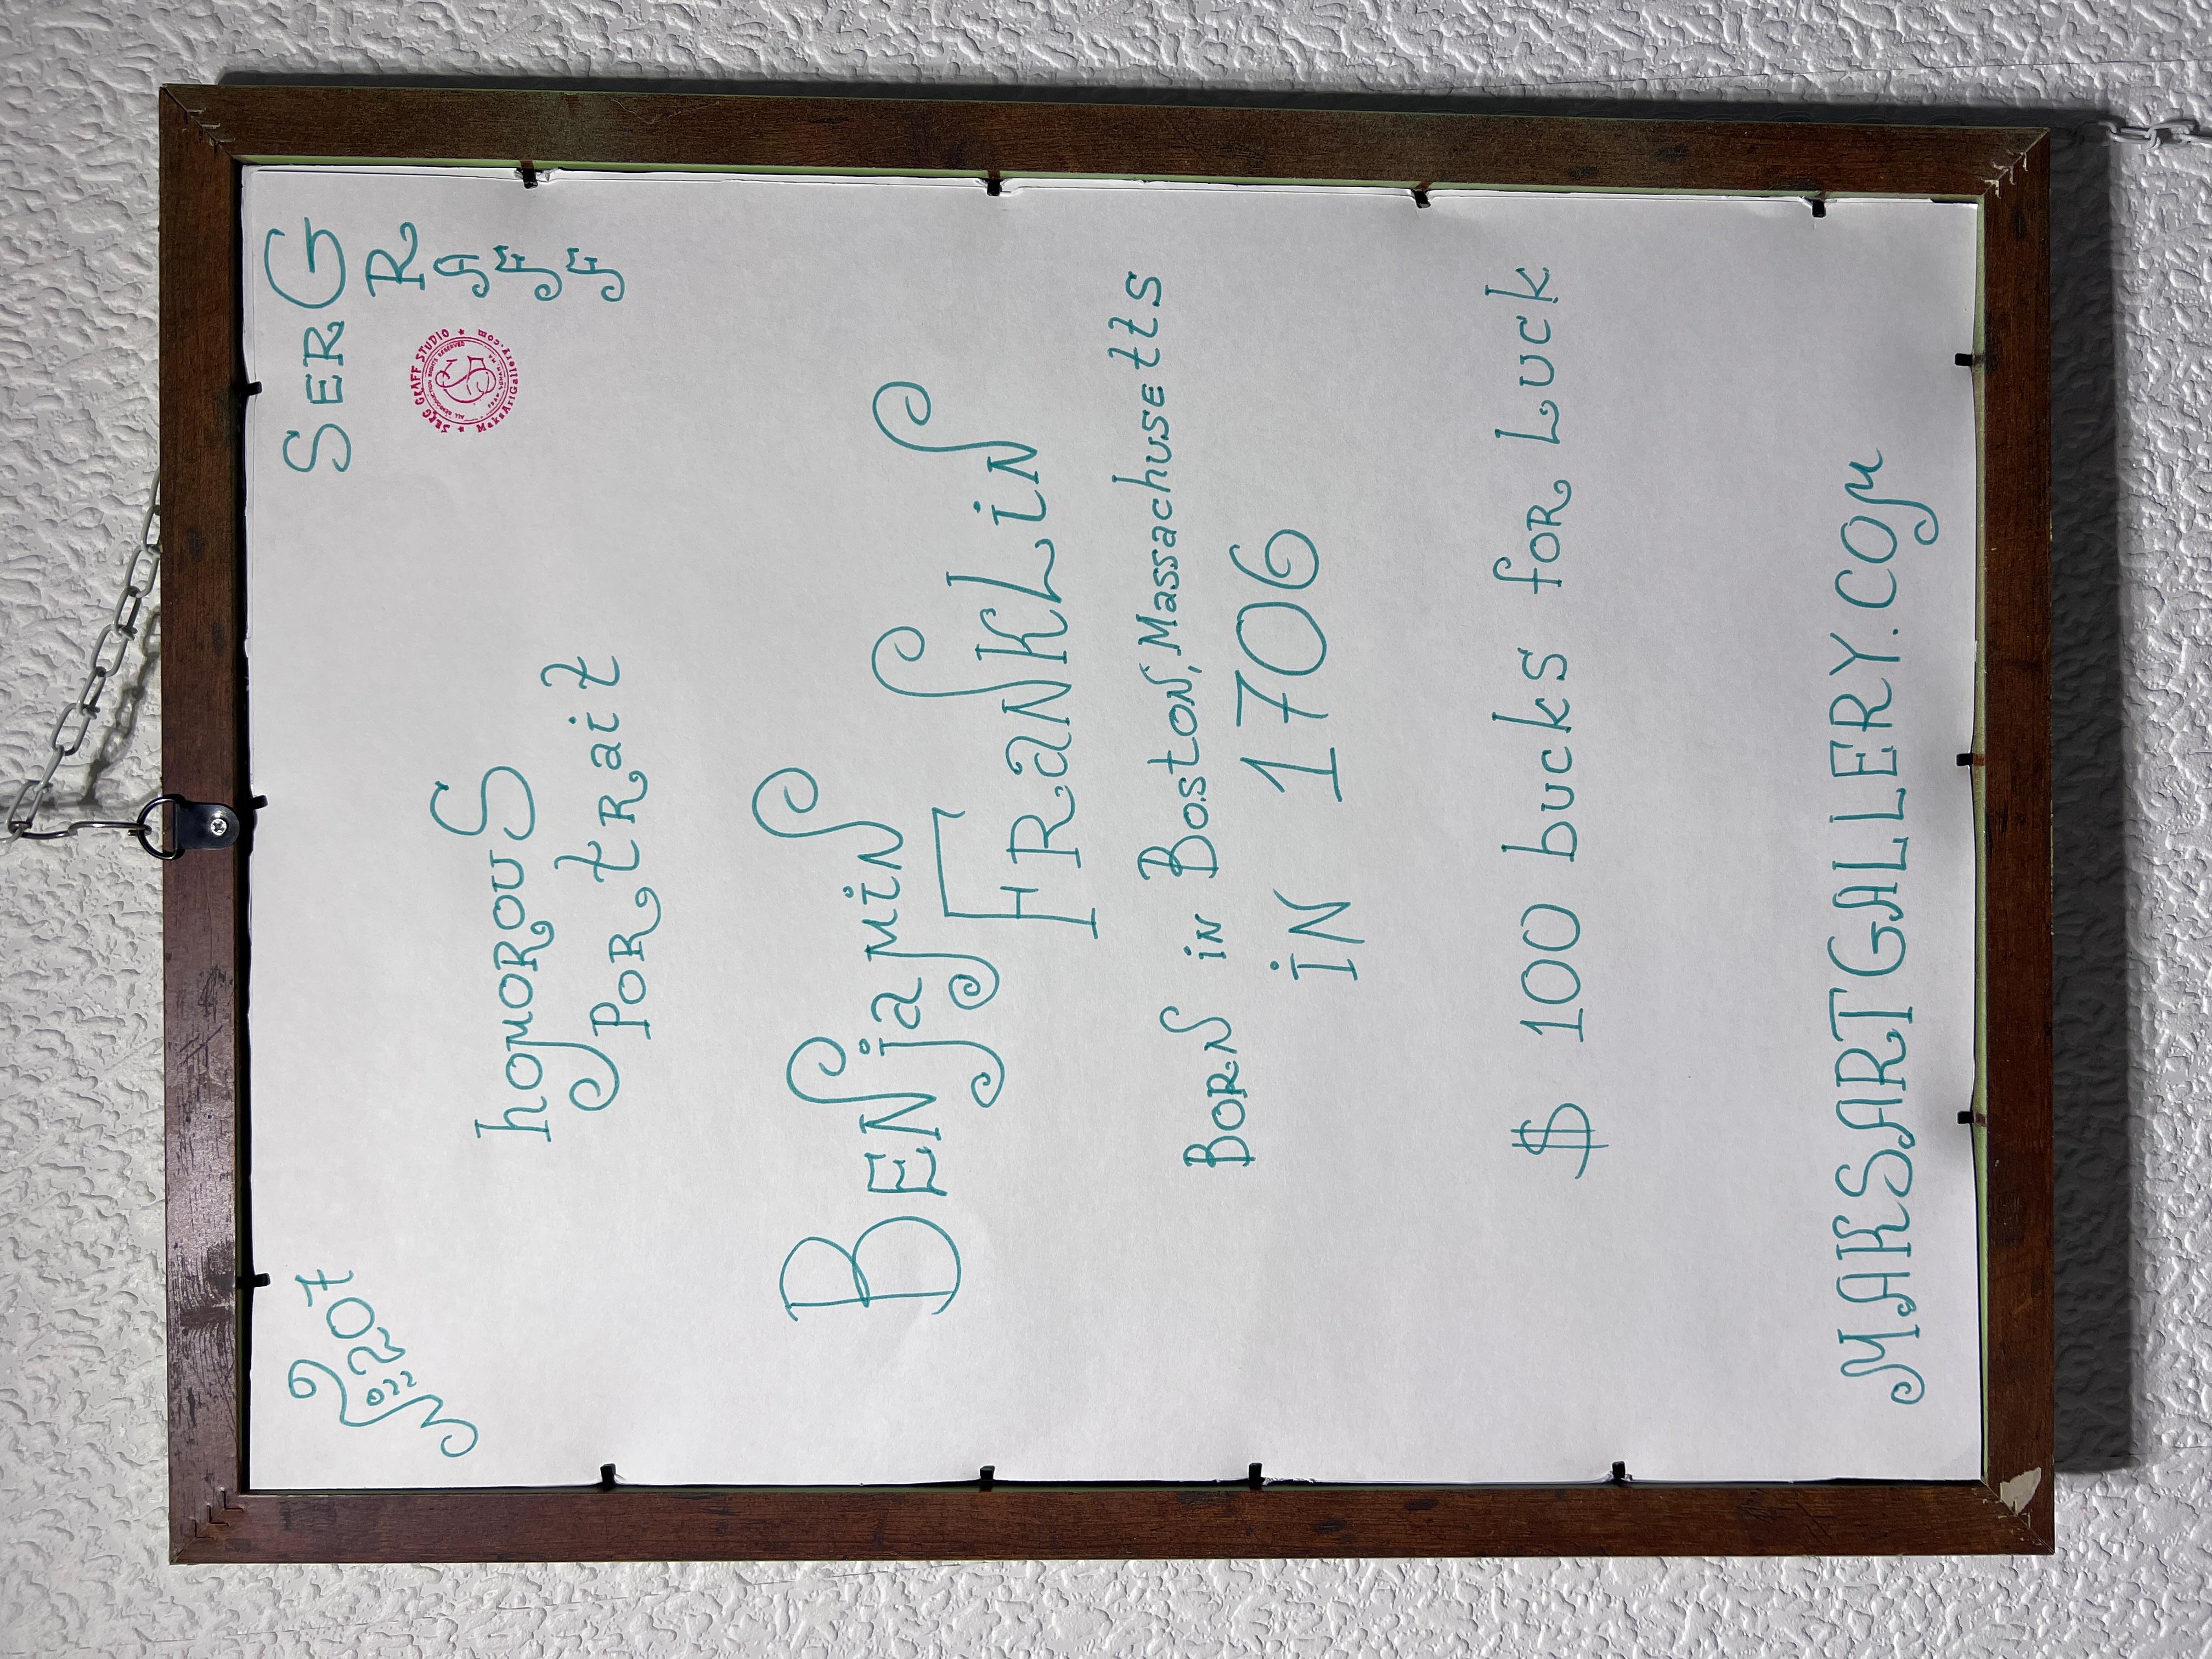 2207
2022
SERG
R
A
F
F
SERG GRAFF STUDIO
MaksArtGallery.com
ALL REPRODUCTION RIGHTS RESERVED
homorous
PORtRait
BENjamiN
FRaNKLiN
BORN iN BostoN, Massachusetts
iN 1706
$ 100 bucks foR Luck
MAKSARTGALLERY.COM